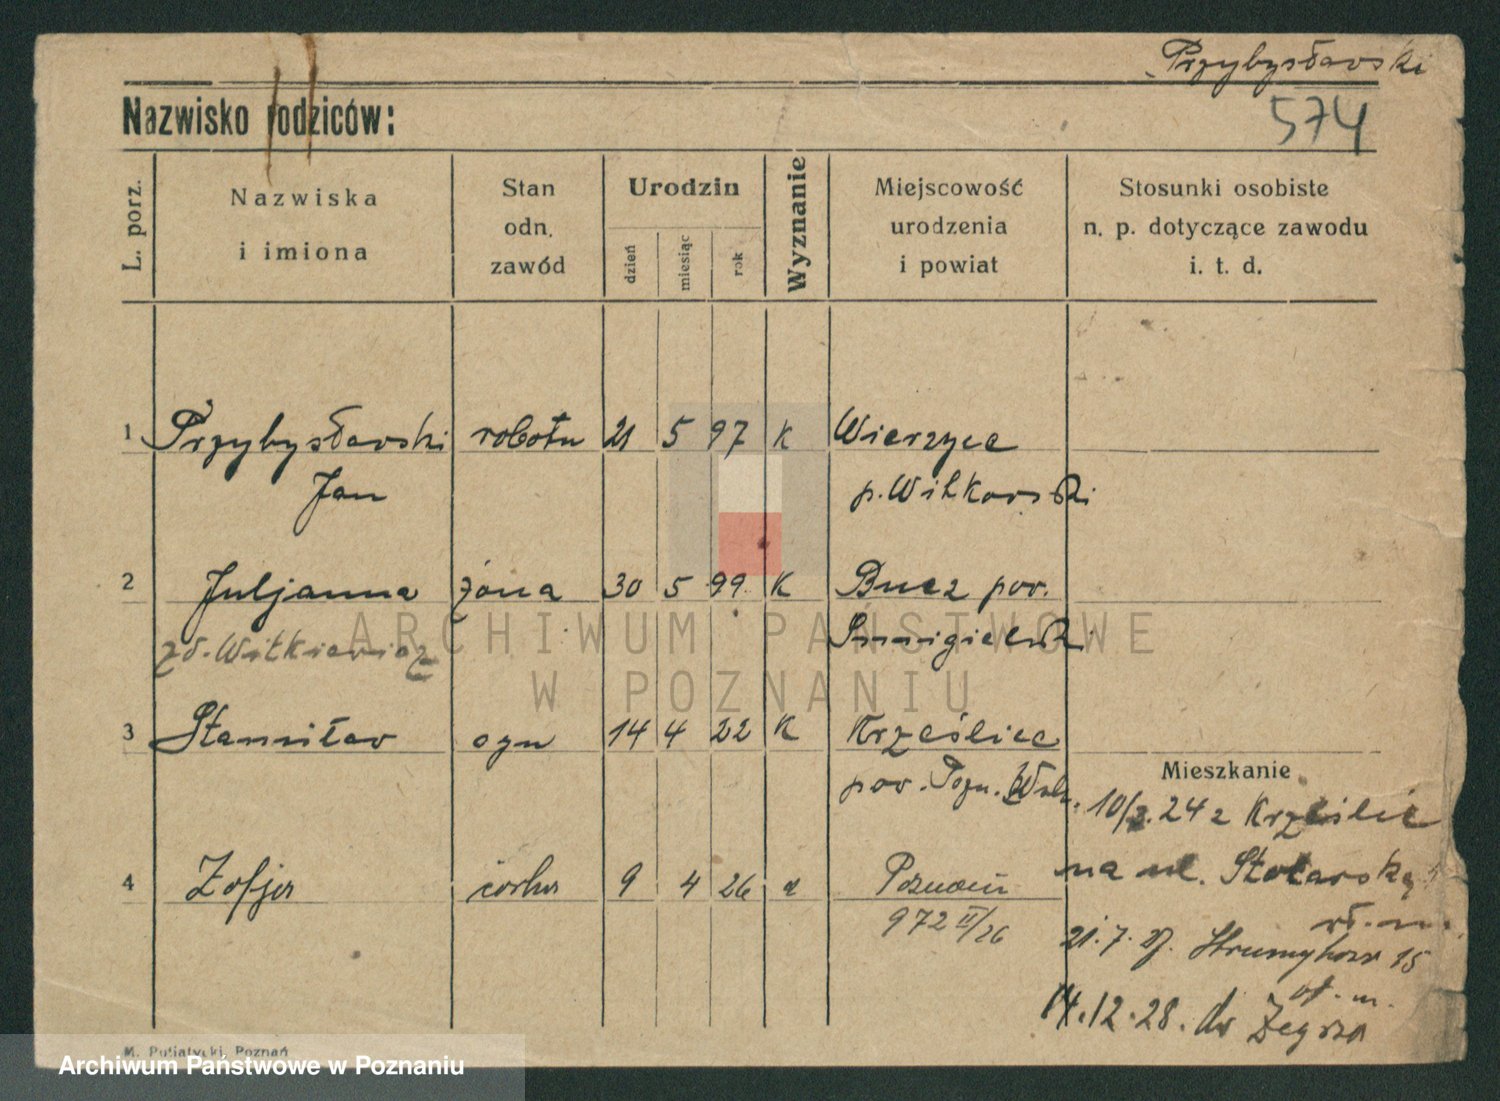 Przybysławski
574
Nazwisko rodziców:
L. porz.
Nazwiska
i imiona
Stan
odn.
zawód
Urodzin
dzień
miesiąc
rok
Wyznanie
Miejscowość
urodzenia
i powiat
Stosunki osobiste
n. p. dotyczące zawodu
i. t. d.
1 Przybysławski robotn 21 5 97 K Wierzyce
Jan p. Witkowski
2 Juljanna żona 30 5 99 K Bucz pow.
zd. Witkiewicz Śmigielski
3 Stanisław syn 14 4 22 K Krześlice
pow. Pozn.
Mieszkanie
10/3. 24 z Krześlic
na ul. Stolarską
4 Zofja córka 9 4 26 Poznań
972 II/26
21. 7. Strumykowa 15
14. 12. 28. do Zegrza
M. Putiatycki, Poznań
ARCHIWUM PAŃSTWOWE
W POZNANIU
Archiwum Państwowe w Poznaniu